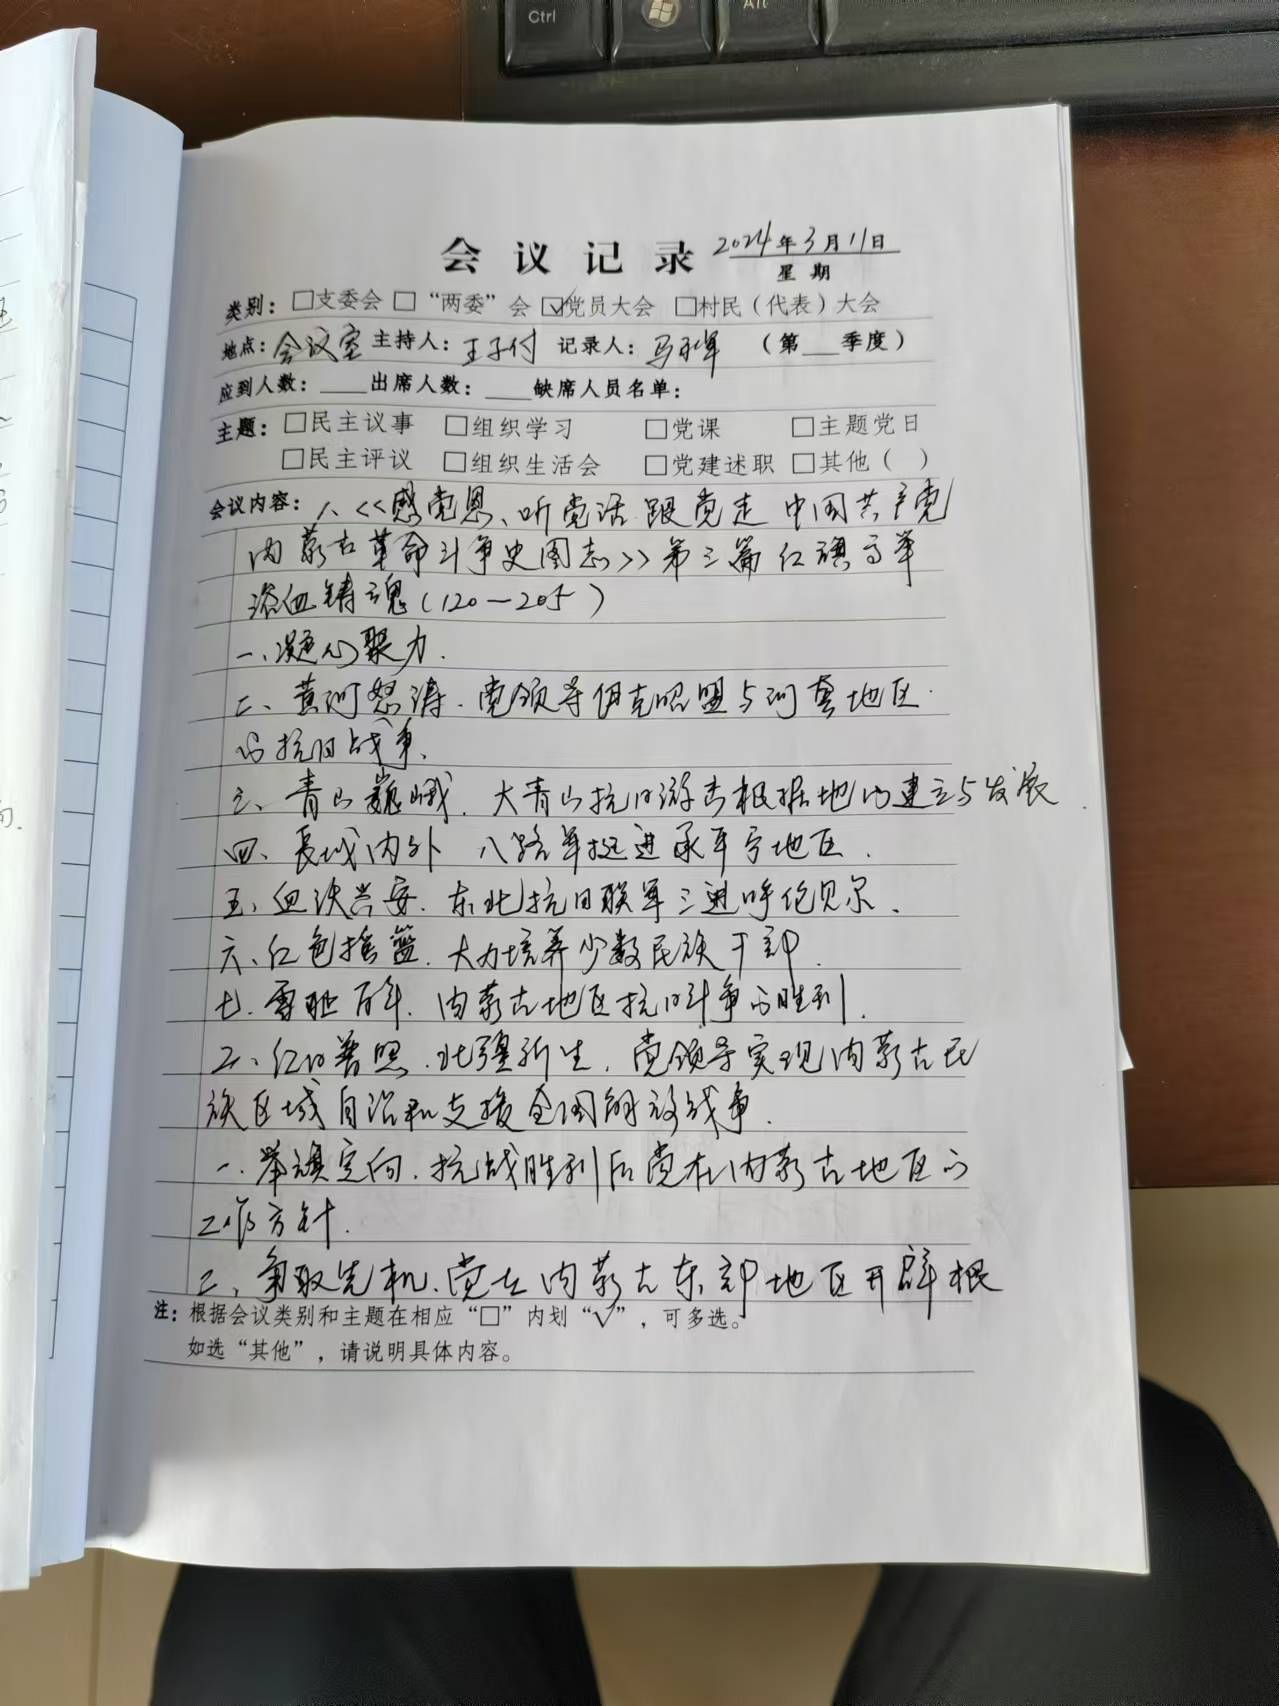 Ctrl
Alt
会议记录 2024年3月11日
星期
类别：□支委会 □“两委”会 ☑党员大会 □村民（代表）大会
地点：会议室 主持人：王子付 记录人：马 （第___季度）
应到人数：____出席人数：____缺席人员名单：
主题：□民主议事 □组织学习 □党课 □主题党日
□民主评议 □组织生活会 □党建述职 □其他（ ）
会议内容：1、<<感党恩、听党话 跟党走 中国共产党
内蒙古革命斗争史图志>>第三篇 红旗高举
浴血铸魂（120—205）
一、凝心聚力.
二、黄河怒涛.党领导伊克昭盟与河套地区
的抗日战争、
三、青山巍峨.大青山抗日游击根据地的建立与发展.
四、长城内外 八路军挺进承平宁地区.
五、血沃兴安.东北抗日联军三进呼伦贝尔、
六、红色摇篮.大力培养少数民族干部.
七.雪耻百年.内蒙古地区抗日斗争的胜利.
2、红日普照.北疆新生.党领导实现内蒙古民
族区域自治和支援全国解放战争.
一.举旗定向.抗战胜利后党在内蒙古地区的
工作方针.
二、争取先机、党在内蒙古东部地区开辟根
注：根据会议类别和主题在相应“□”内划“√”，可多选。
如选“其他”，请说明具体内容。